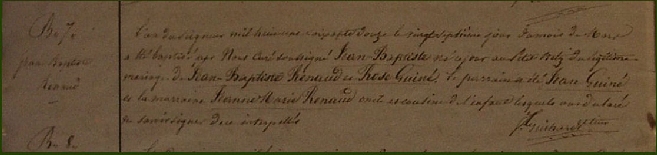 B. 7.
Jean Baptiste
Renaud
L'an du Seigneur mil huit cent soixante douze le vingt septième jour du mois de Mars
a été baptisé par Nous Curé soussigné Jean-Baptiste né du légitime
mariage de Jean-Baptiste Renaud et Rose Guiné le parrain a été Jean Guiné
et la marraine Jeanne Marie Renaud oncle et cousine de l'enfant lesquels ont déclaré
ne savoir signer de ce interpellés
Guichard
B. 8.